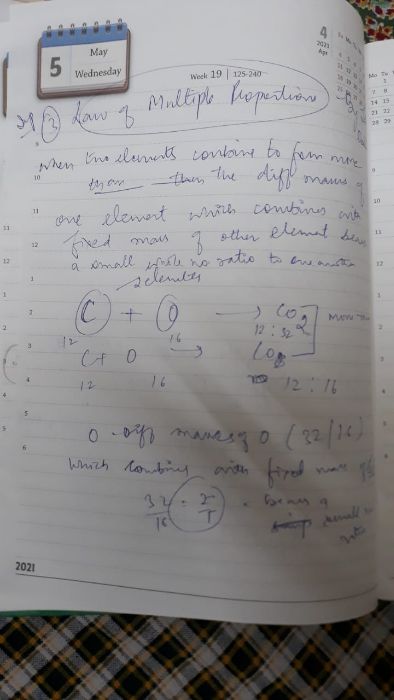 May
5
Wednesday
Week 19 | 125-240
4
2021
Apr
(3) Law of Multiple Proportions
when two elements combine to form more
than then the diff masses of
one element which combines with
fixed mass of other element bears
a small whole no ratio to one another
2 elements
C + O → CO2
12 16 12 : 32
C + O → CO
12 16 12 : 16
O - diff masses of O (32/16)
which combines with fixed mass
32/16 = 2/1 - bears a
small
ratio
2021